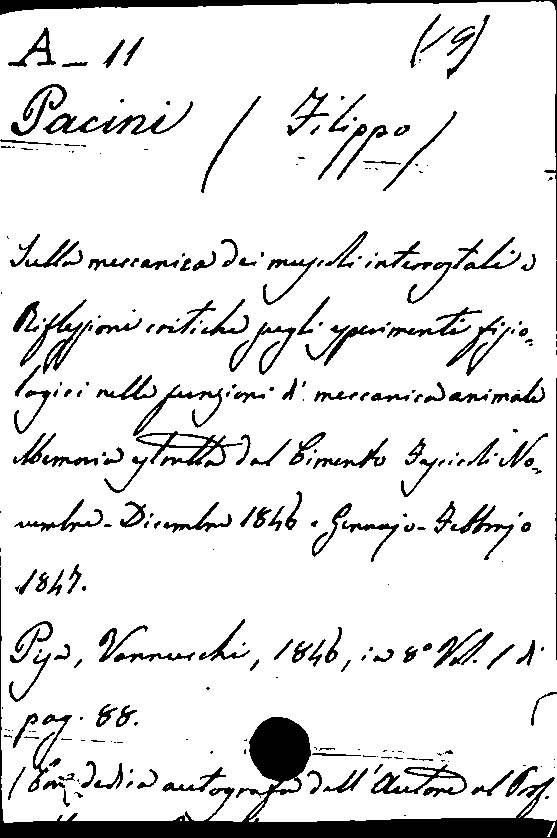 A_ 11 (19)
Pacini (Filippo)
Sulla meccanica dei muscoli intercostali e
Riflessioni critiche sugli sperimenti fisio-
logici nelle funzioni di meccanica animale
Memoria estratta dal Cimento Fascicoli No-
vembre - Dicembre 1846 e Gennajo - Febbrajo
1847.
Pisa, Vannucchi, 1846, in 8° Vol. 1 di
pag. 88.
(Con dedica autografa dell'Autore al Prof.